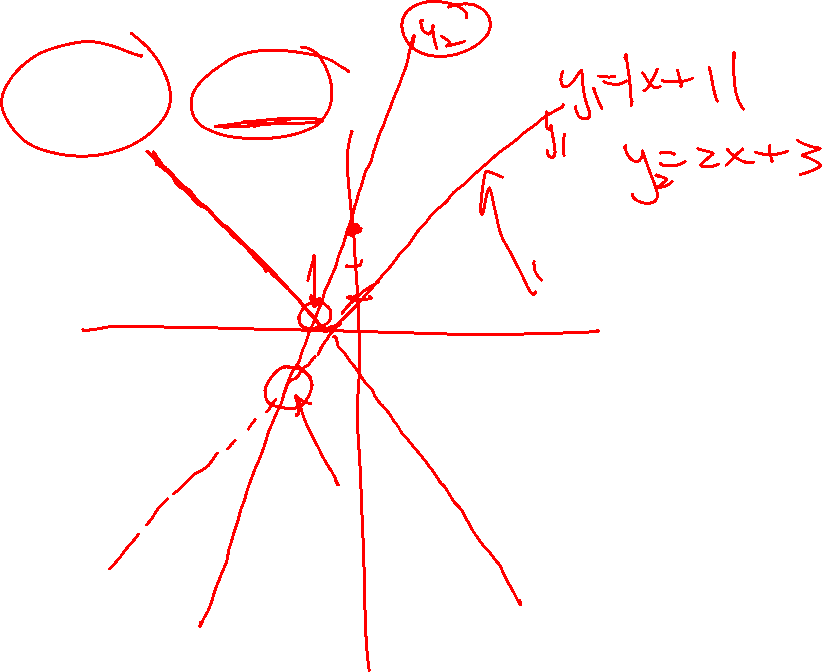 y₂
y₁=|x+1|
y₁
y₂=2x+3